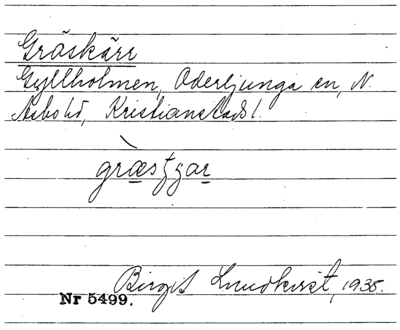 Gräskärr
Gyllholmen, Oderljunga sn, N.
Åsbo hd, Kristianstads l.
Birgit Lundkvist, 1935.
Nr 5499.